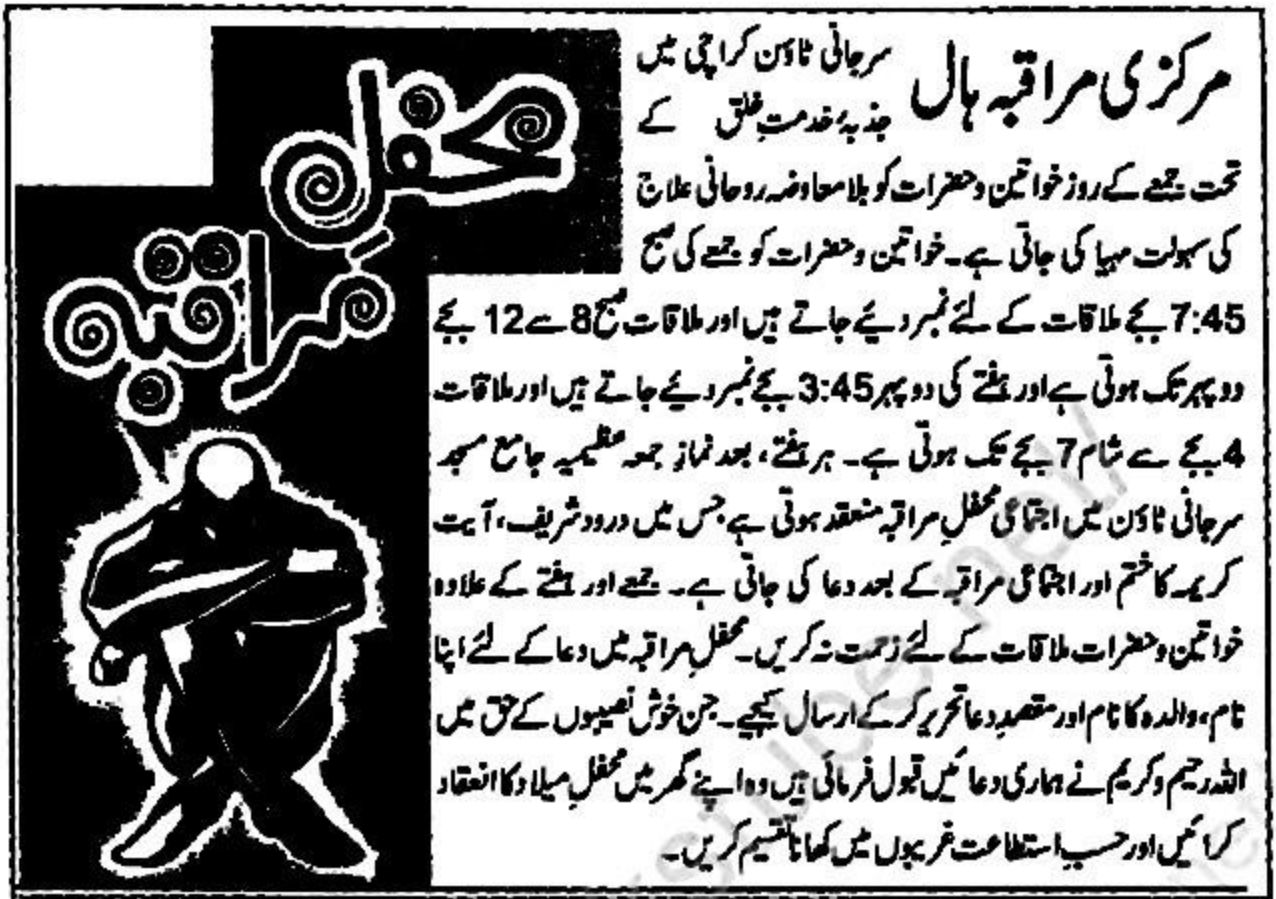 محفلِ
مراقبہ
مرکزی مراقبہ ہال سرجانی ٹاؤن کراچی میں
جذبۂ خدمتِ خلق کے
تحت جمعے کے روز خواتین و حضرات کو بلا معاوضہ روحانی علاج
کی سہولت مہیا کی جاتی ہے۔ خواتین و حضرات کو جمعے کی صبح
7:45 بجے ملاقات کے لئے نمبر دیئے جاتے ہیں اور ملاقات صبح 8 سے 12 بجے
دوپہر تک ہوتی ہے اور ہفتے کی دوپہر 3:45 بجے نمبر دیئے جاتے ہیں اور ملاقات
4 بجے سے شام 7 بجے تک ہوتی ہے۔ ہر ہفتے، بعد نمازِ جمعہ عظیمیہ جامع مسجد
سرجانی ٹاؤن میں اجتماعی محفلِ مراقبہ منعقد ہوتی ہے جس میں درود شریف، آیت
کریمہ کا ختم اور اجتماعی مراقبہ کے بعد دعا کی جاتی ہے۔ جمعے اور ہفتے کے علاوہ
خواتین و حضرات ملاقات کے لئے زحمت نہ کریں۔ محفلِ مراقبہ میں دعا کے لئے اپنا
نام، والدہ کا نام اور مقصدِ دعا تحریر کر کے ارسال کیجیے۔ جن خوش نصیبوں کے حق میں
اللہ رحیم و کریم نے ہماری دعائیں قبول فرمائی ہیں وہ اپنے گھر میں محفلِ میلاد کا انعقاد
کرائیں اور حسبِ استطاعت غریبوں میں کھانا تقسیم کریں۔